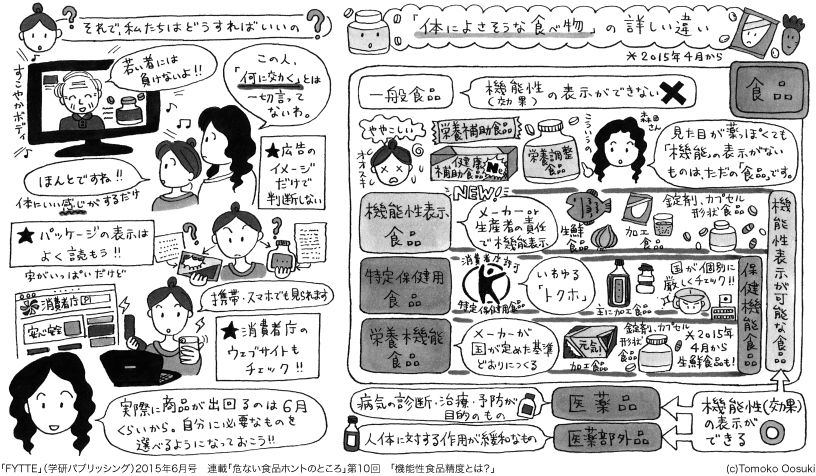 それで、私たちはどうすればいいの
?
すこやかボディ
若い者には
負けないよ!!
この人、
「何に効く」とは
一切言って
ないわ。
ほんとですね!!
体にいい感じがするだけ
★広告の
イメージ
だけで
判断しない
★パッケージの表示は
よく読もう!!
字がいっぱいだけど
?
?
消費者庁
安心安全
携帯・スマホでも見られます
★消費者庁の
ウェブサイトも
チェック!!
実際に商品が出回るのは6月
くらいから。自分に必要なものを
選べるようになっておこう!!
「体によさそうな食べ物」の詳しい違い
*2015年4月から
食品
一般食品
機能性の表示ができない
(効果)
ややこしい
オオスキ
栄養補助食品
健康
補助食品
New
栄養調整
食品
こういうの
森田さん
見た目が薬っぽくても
「機能」の表示がない
ものは、ただの「食品」です。
NEW!
機能性表示
食品
メーカーor
生産者の責任
で機能表示
生鮮
食品
加工
食品
錠剤、カプセル
形状食品
機能性表示が可能な食品
特定保健用
食品
消費者庁許可
特定保健用食品
いわゆる
「トクホ」
主に加工食品
国が個別に
厳しくチェック!!
保健機能食品
栄養機能
食品
メーカーが
国が定めた基準
どおりにつくる
元気!
加工食品
錠剤、カプセル
形状
食品
*2015年
4月から
生鮮食品も!
病気の診断・治療・予防が
目的のもの
医薬品
人体に対する作用が緩和なもの
医薬部外品
機能性(効果)
の表示が
できる
「FYTTE」(学研パブリッシング)2015年6月号 連載「危ない食品ホントのところ」第10回 「機能性食品精度とは?」
(c)Tomoko Oosuki